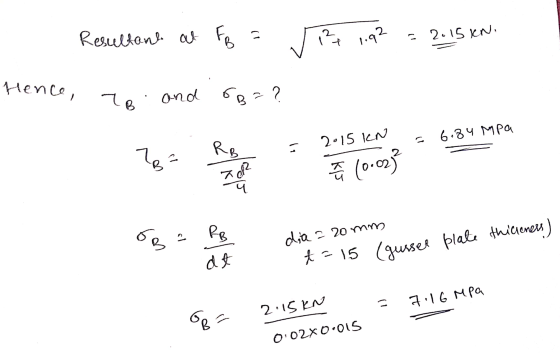 Resultant at F_B = √(1² + 1.9²) = 2.15 KN.
Hence, τ_B and σ_B = ?
τ_B = R_B / (πd²/4) = 2.15 KN / (π/4 (0.02)²) = 6.84 MPa
σ_B = R_B / dt dia = 20 mm
t = 15 (gusset plate thickness)
σ_B = 2.15 KN / 0.02×0.015 = 7.16 MPa